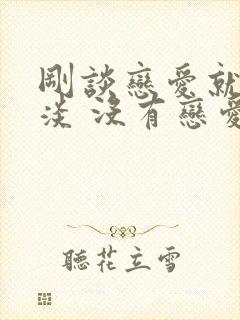 剛談戀愛就
淡 沒有戀愛
聽花立雪